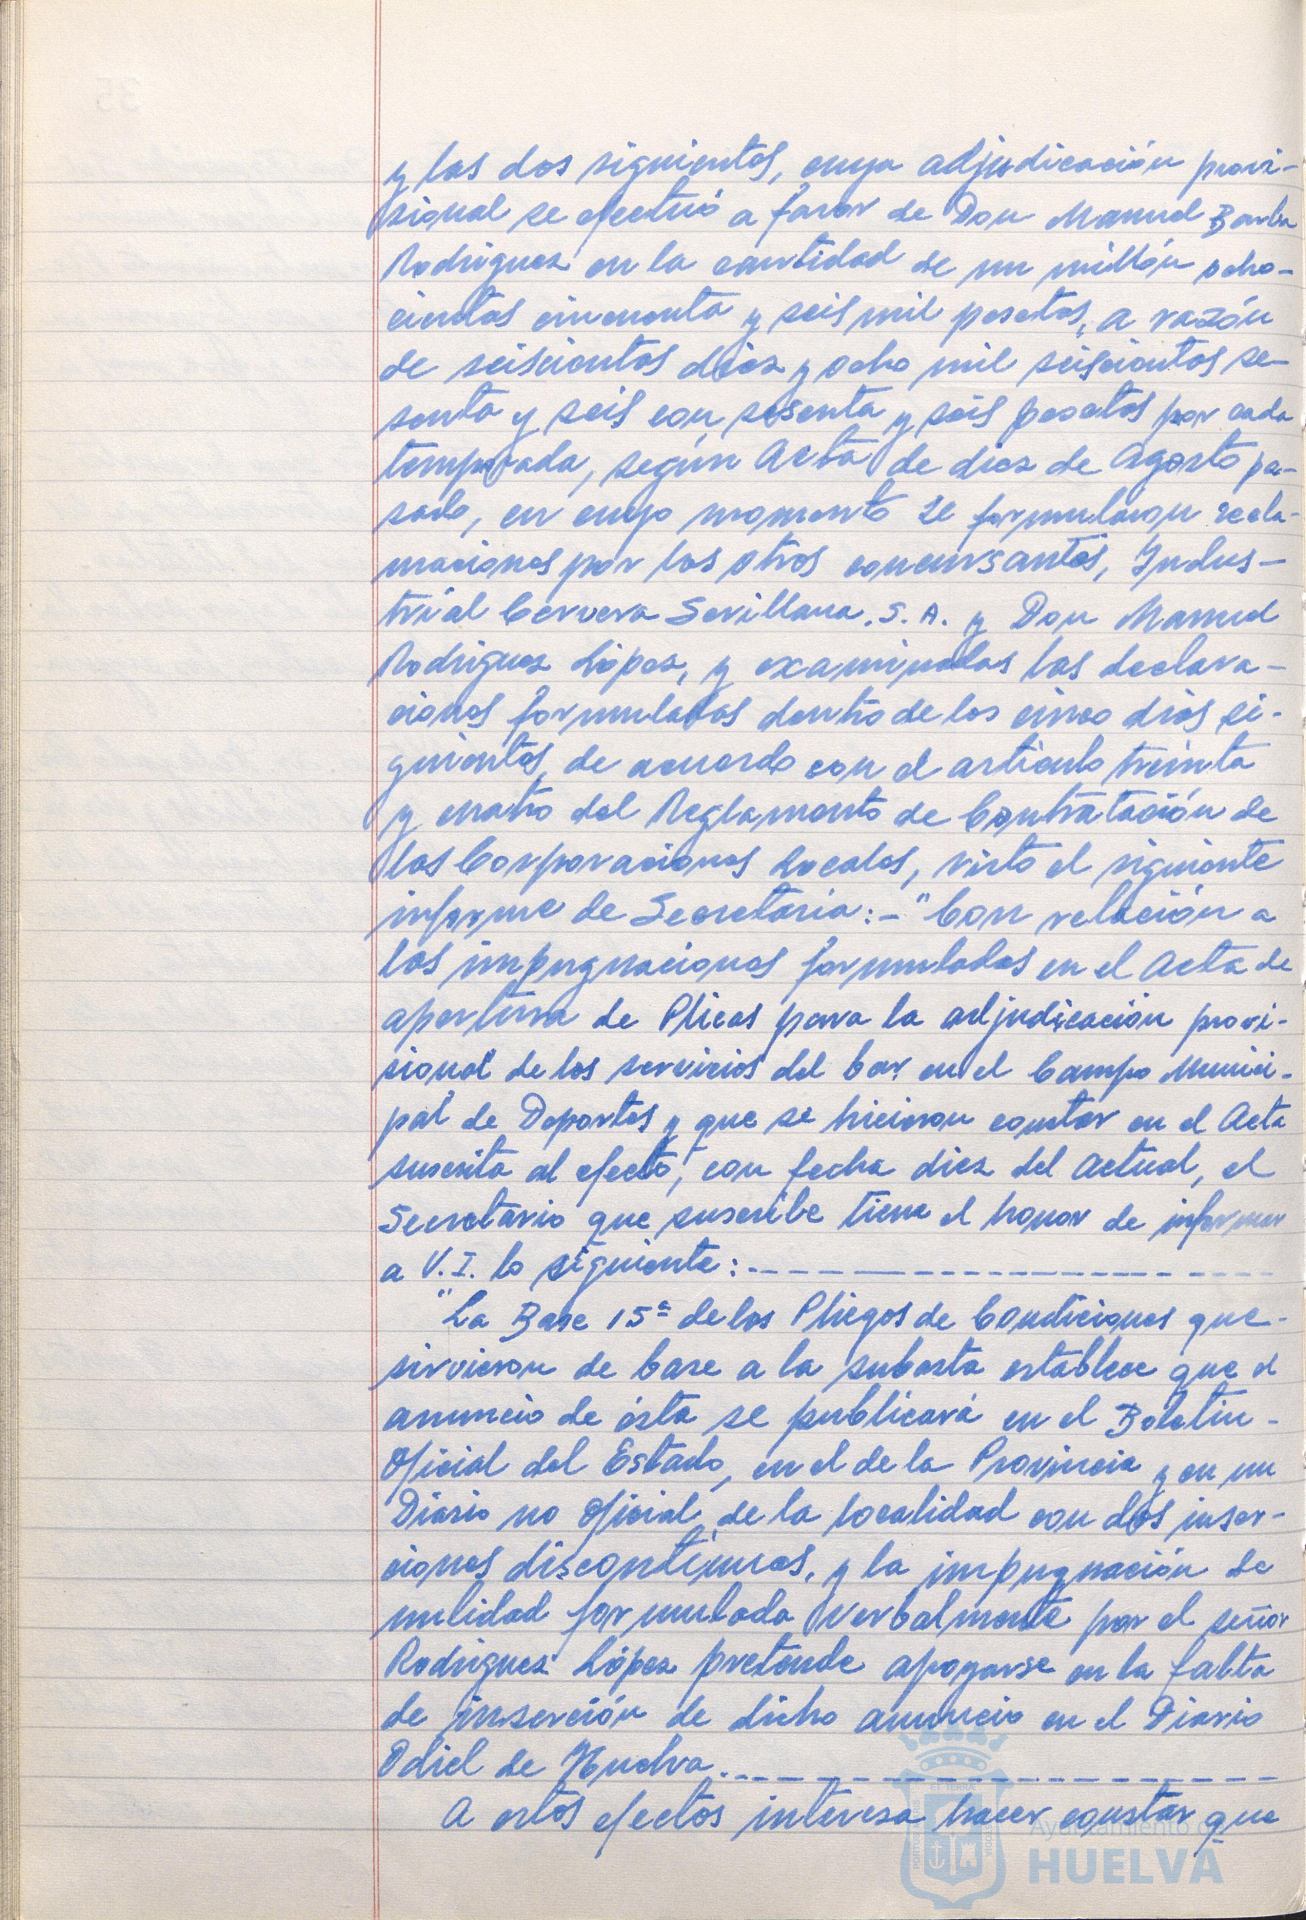 y las dos siguientes, cuya adjudicación provi-
sional se efectuó a favor de Don Manuel Barba
Rodriguez en la cantidad de un millón ocho-
cientas cincuenta y seis mil pesetas, a razón
de seiscientas diez y ocho mil seiscientas se-
senta y seis con sesenta y seis pesetas por cada
temporada, según Acta de diez de Agosto pa-
sado, en cuyo momento se formularon recla-
maciones por los otros concursantes, Indus-
trial Cervera Sevillana. S. A. y Don Manuel
Rodriguez López, y examinadas las declara-
ciones formuladas dentro de los cinco dias si-
guientes, de acuerdo con el articulo treinta
y cuatro del Reglamento de Contratación de
las Corporaciones Locales, visto el siguiente
informe de Secretaria: - "Con relación a
las impugnaciones formuladas en el Acta de
apertura de Plicas para la adjudicación provi-
sional de los servicios del bar en el Campo Munici-
pal de Deportes y que se hicieron constar en el Acta
suscrita al efecto, con fecha diez del actual, el
Secretario que suscribe tiene el honor de informar
a V. I. lo siguiente:
"La Base 15ª de los Pliegos de Condiciones que-
sirvieron de base a la subasta establece que el
anuncio de ésta se publicará en el Boletin-
Oficial del Estado, en el de la Provincia y en un
Diario no oficial de la localidad con dos inser-
ciones discontinuas, y la impugnación de
nulidad formulada verbalmente por el señor
Rodriguez López pretende apoyarse en la falta
de inserción de dicho anuncio en el Diario
Odiel de Huelva.
A estos efectos interesa hacer constar que
Ayuntamiento de
HUELVA